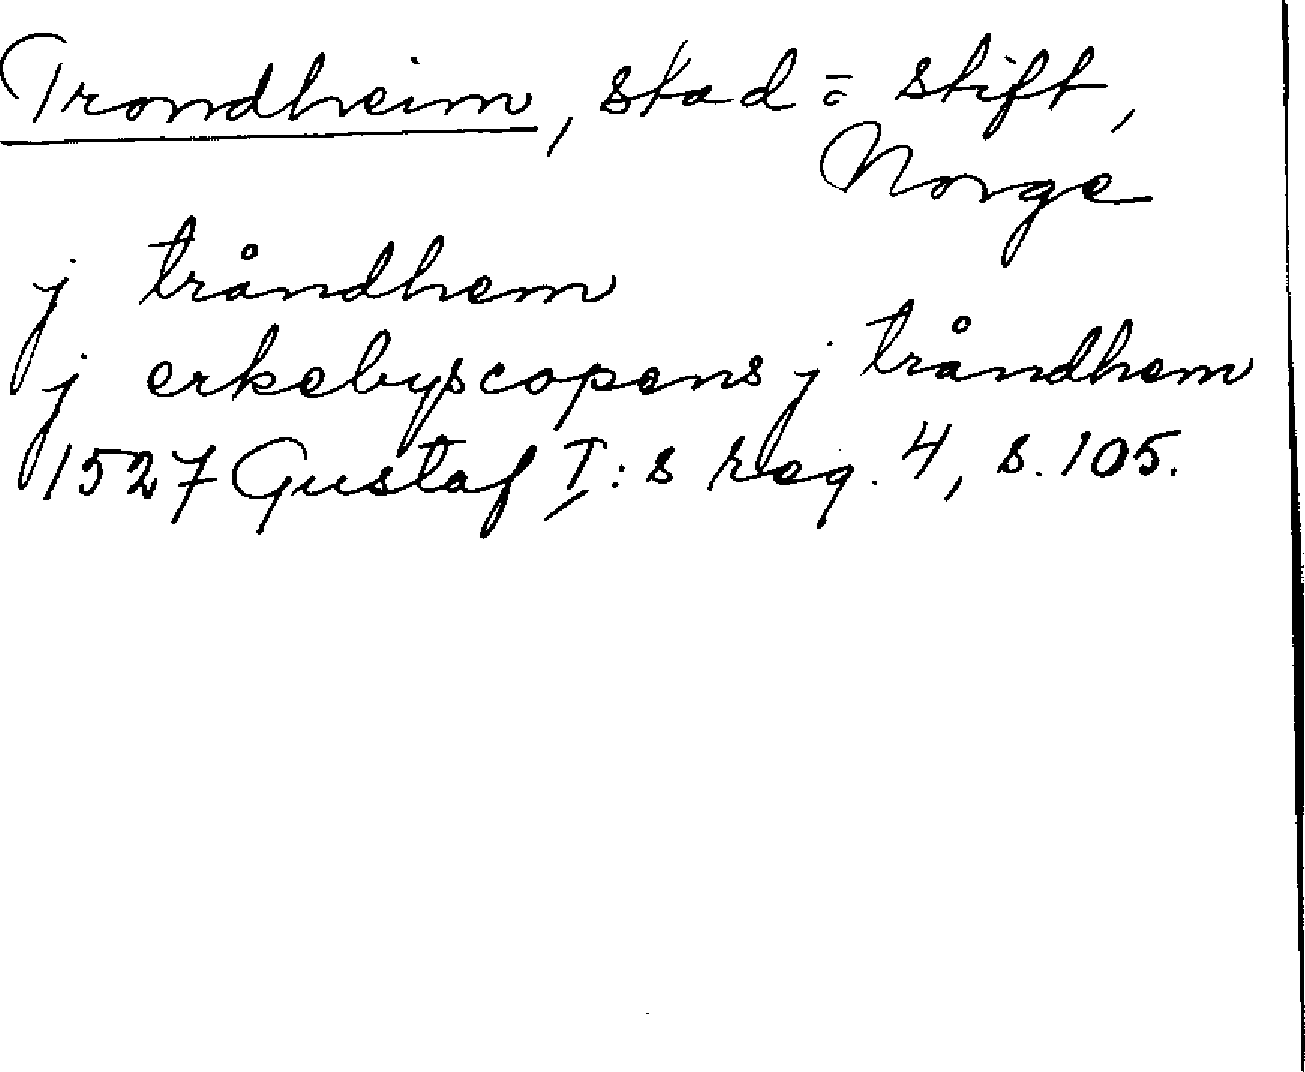 Trondheim, stad = stift,
Norge
j tråndhem
j erkebyscopens j tråndhem
1527 Gustaf I:s reg. 4, s. 105.